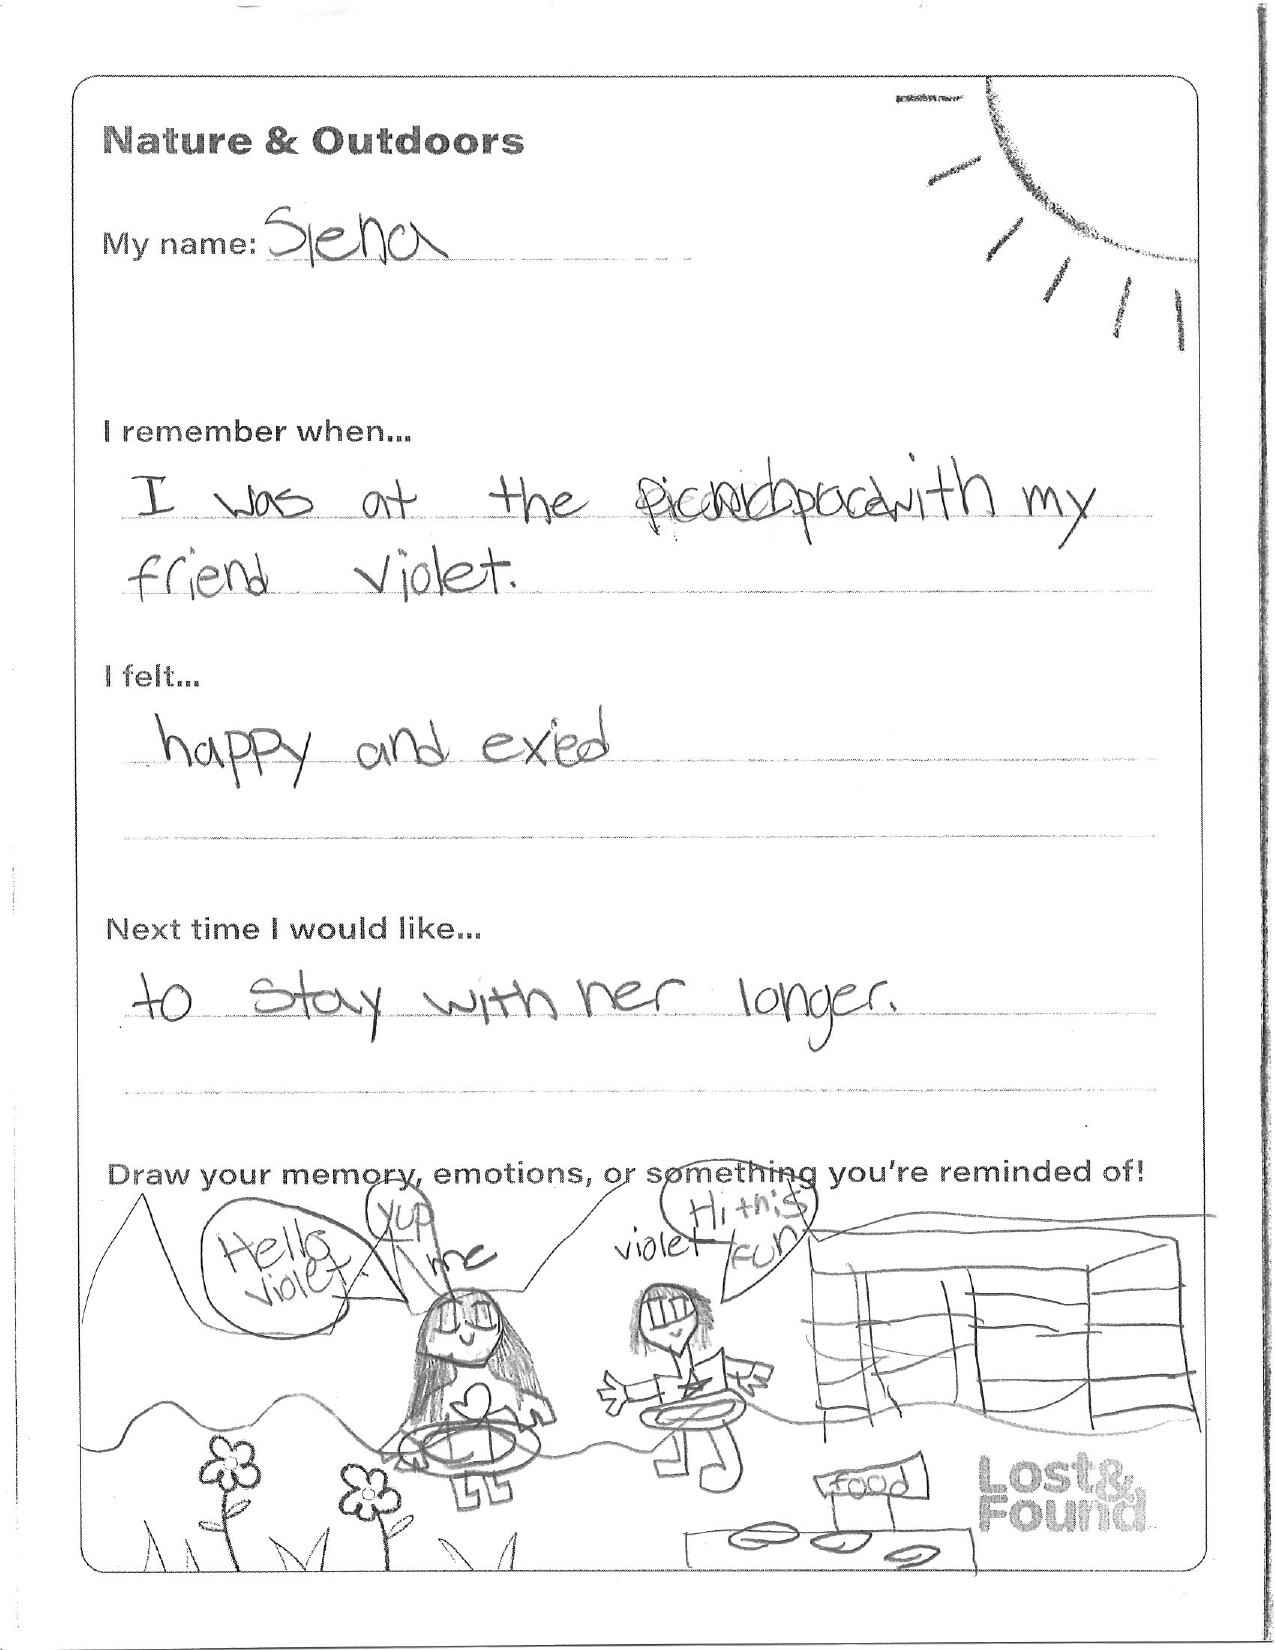 Nature & Outdoors
My name: Siena
I remember when...
I was at the with my
friend violet.
I felt...
happy and exied
Next time I would like...
to stay with her longer.
Draw your memory, emotions, or something you're reminded of!
Hello
violet
yup
me
violet
Hi this
fun
food
Lost&
Found